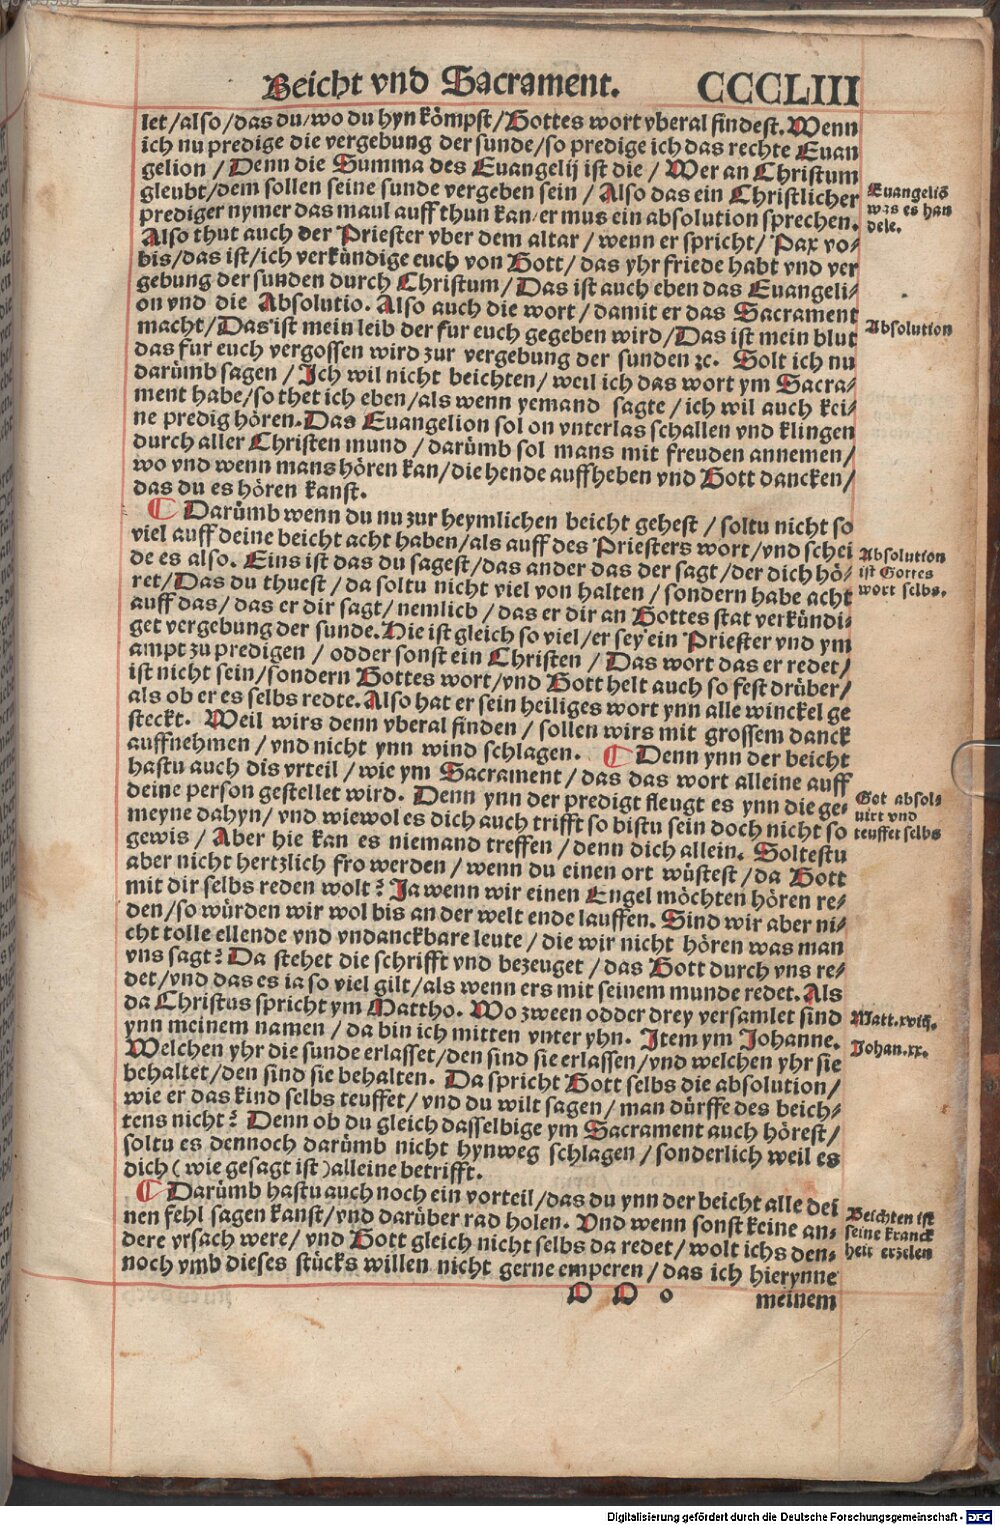 Beicht vnd Sacrament. CCCLIII
let/also/das du/wo du hyn kömpst/Gottes wort vberal findest. Wenn
ich nu predige die vergebung der sunde/so predige ich das rechte Euan
gelion / Denn die Summa des Euangelij ist die / Wer an Christum
gleubt/dem sollen seine sunde vergeben sein / Also das ein Christlicher
prediger nymer das maul auff thun kan/er mus ein absolution sprechen.
Also thut auch der Priester vber dem altar / wenn er spricht/ Pax vo⸗
bis/das ist/ich verkündige euch von Gott/ das yhr friede habt vnd ver
gebung der sunden durch Christum/ Das ist auch eben das Euangeli⸗
on vnd die Absolutio. Also auch die wort/ damit er das Sacrament
macht/Das ist mein leib der fur euch gegeben wird/Das ist mein blut
das fur euch vergossen wird zur vergebung der sunden ꝛc. Solt ich nu
darümb sagen / Ich wil nicht beichten/ weil ich das wort ym Sacra⸗
ment habe/so thet ich eben/als wenn yemand sagte / ich wil auch kei⸗
ne predig hören. Das Euangelion sol on vnterlas schallen vnd klingen
durch aller Christen mund / darümb sol mans mit freuden annemen/
wo vnd wenn mans hören kan/die hende auffheben vnd Gott dancken/
das du es hören kanst.
¶ Darümb wenn du nu zur heymlichen beicht gehest / soltu nicht so
viel auff deine beicht acht haben/als auff des Priesters wort/vnd schei
de es also. Eins ist das du sagest/das ander das der sagt/der dich hö⸗
ret/Das du thuest / da soltu nicht viel von halten / sondern habe acht
auff das/das er dir sagt/nemlich/das er dir an Gottes stat verkündi⸗
get vergebung der sunde. Hie ist gleich so viel/er sey ein Priester vnd ym
ampt zu predigen / odder sonst ein Christen / Das wort das er redet/
ist nicht sein/sondern Gottes wort/vnd Gott helt auch so fest drüber/
als ob er es selbs redte. Also hat er sein heiliges wort ynn alle winckel ge
steckt. Weil wirs denn vberal finden / sollen wirs mit grossem danck
auffnehmen / vnd nicht ynn wind schlagen. ¶ Denn ynn der beicht
hastu auch dis vrteil / wie ym Sacrament / das das wort alleine auff
deine person gestellet wird. Denn ynn der predigt fleugt es ynn die ge⸗
meyne dahyn/ vnd wiewol es dich auch trifft so bistu sein doch nicht so
gewis / Aber hie kan es niemand treffen / denn dich allein. Soltestu
aber nicht hertzlich fro werden / wenn du einen ort wüstest/da Gott
mit dir selbs reden wolt? Ja wenn wir einen Engel möchten hören re⸗
den/so würden wir wol bis an der welt ende lauffen. Sind wir aber ni⸗
cht tolle ellende vnd vndanckbare leute / die wir nicht hören was man
vns sagt? Da stehet die schrifft vnd bezeuget / das Gott durch vns re⸗
det/vnd das es ia so viel gilt/als wenn ers mit seinem munde redet. Als
da Christus spricht ym Mattho. Wo zween odder drey versamlet sind
ynn meinem namen / da bin ich mitten vnter yhn. Item ym Johanne.
Welchen yhr die sunde erlasset/den sind sie erlassen/vnd welchen yhr sie
behaltet/den sind sie behalten. Da spricht Gott selbs die absolution/
wie er das kind selbs teuffet/ vnd du wilt sagen/ man dürffe des beich⸗
tens nicht? Denn ob du gleich dasselbige ym Sacrament auch hörest/
soltu es dennoch darümb nicht hynweg schlagen / sonderlich weil es
dich ( wie gesagt ist ) alleine betrifft.
¶ Darümb hastu auch noch ein vorteil/das du ynn der beicht alle dei
nen fehl sagen kanst/vnd darüber rad holen. Vnd wenn sonst keine an⸗
dere vrsach were/ vnd Gott gleich nicht selbs da redet/ wolt ichs den⸗
noch vmb dieses stücks willen nicht gerne emperen / das ich hierynne
D D o meinem
Euangelio
was es han
dele.
Absolution
Absolution
ist Gottes
wort selbs.
Got absol⸗
uirt vnd
teuffet selbs
Matt.xviij.
Johan.xx.
Beichten ist
seine kranck
heit erzelen
Digitalisierung gefördert durch die Deutsche Forschungsgemeinschaft - DFG